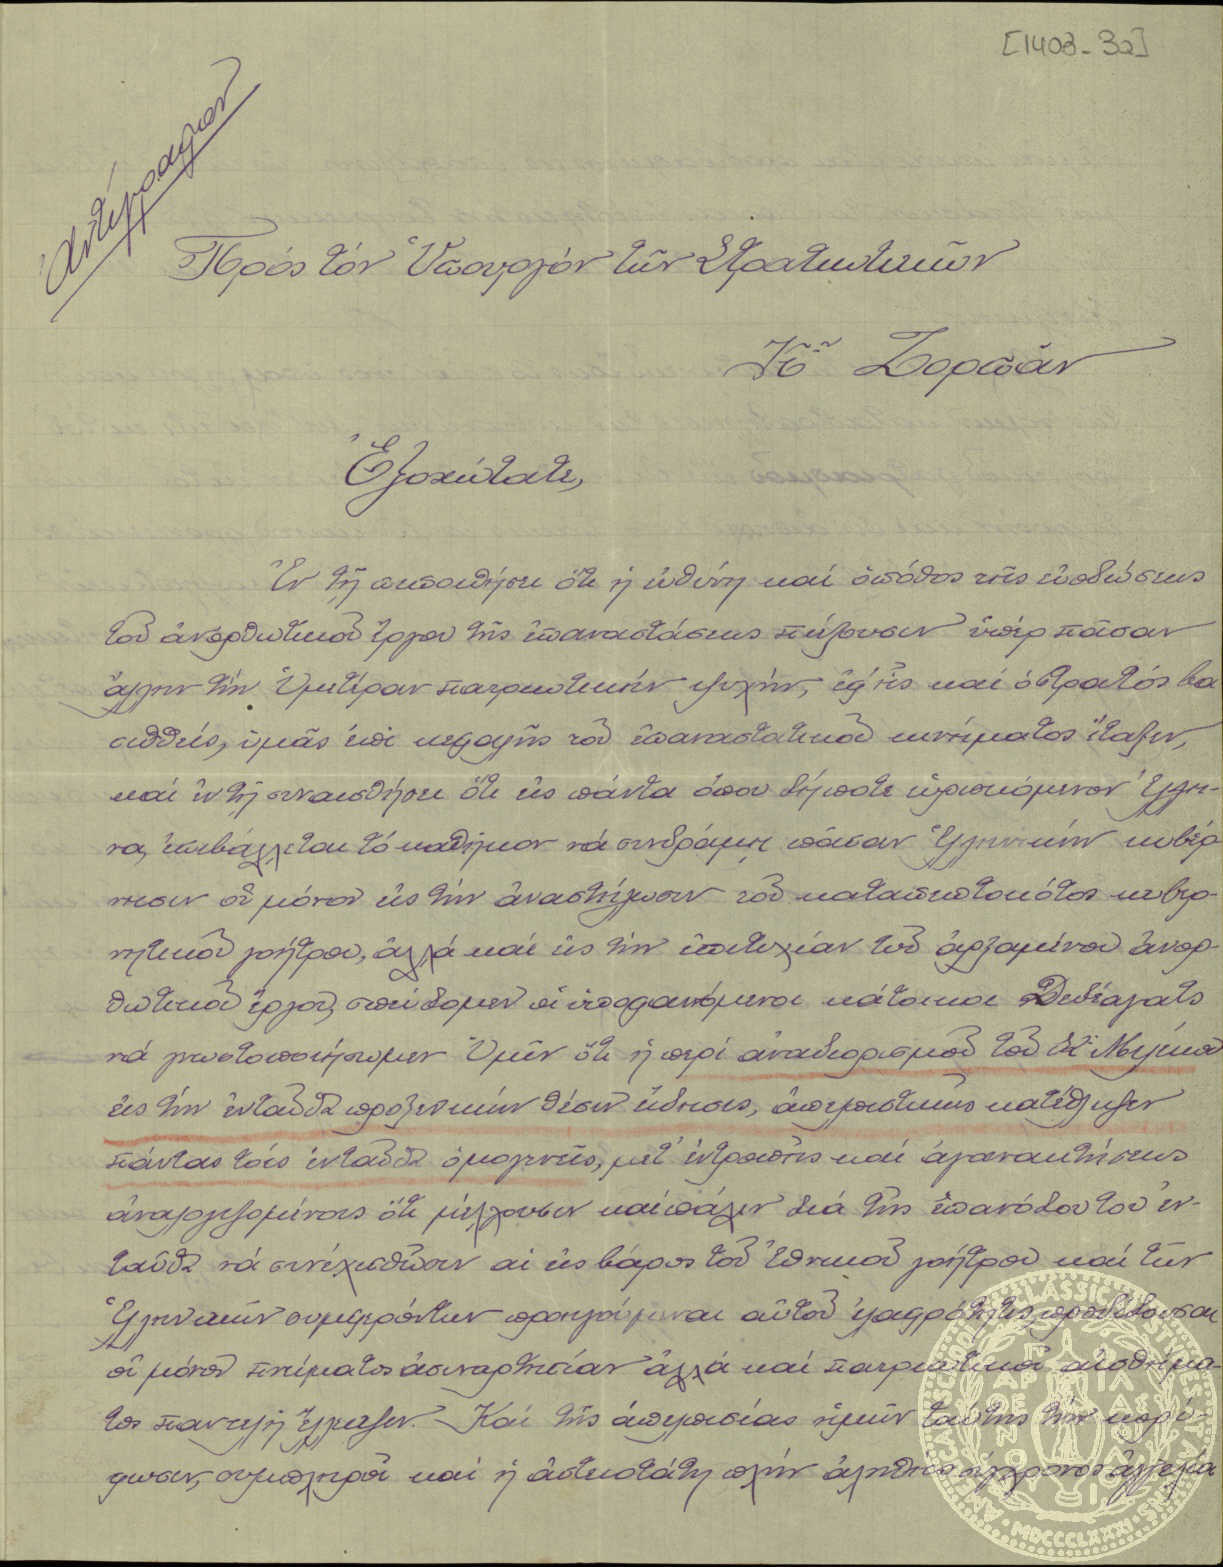 [1403-32]
Ἀντίγραφον
Πρός τόν Ὑπουργόν τῶν Στρατιωτικῶν
Κον Ζορπᾶν
Ἐξοχώτατε,
Ἐν τῇ πεποιθήσει ὅτι ἡ εὐθύνη καί ὁ πόθος τῆς εὐοδώσεως
τοῦ ἀνορθωτικοῦ ἔργου τῆς ἐπαναστάσεως πιέζουσιν ὑπέρ πᾶσαν
ἄλλην τήν Ὑμετέραν πατριωτικήν ψυχήν, ἐφ' ἧς καί ὁ στρατός βα
σισθείς, ὑμᾶς ἐπί κεφαλῆς τοῦ ἐπαναστατικοῦ κινήματος ἔταξεν,
καί ἐν τῇ συναισθήσει ὅτι εἰς πάντα ὅπου δήποτε εὑρισκόμενον Ἕλλη-
να, ἐπιβάλλεται τό καθῆκον νά συνδράμῃ πᾶσαν Ἑλληνικήν κυβέρ
νησιν οὐ μόνον εἰς τήν ἀναστήλωσιν τοῦ καταπεπτωκότος κυβερ-
νητικοῦ γοήτρου, ἀλλά καί εἰς τήν ἐπιτυχίαν τοῦ ἀρξαμένου ἀνορ-
θωτικοῦ ἔργου, σπεύδομεν οἱ ὑποφαινόμενοι κάτοικοι Δεδέαγατς
νά γνωστοποιήσωμεν Ὑμῖν ὅτι ἡ περί ἀναδιορισμοῦ τοῦ κ.
εἰς τήν ἐνταῦθα προξενικήν θέσιν εἴδησις, ἀπελπιστικῶς κατέθλιψεν
πάντας τούς ἐνταῦθα ὁμογενεῖς, μετ' ἐντροπῆς καί ἀγανακτήσεως
ἀναλογιζομένους ὅτι μέλλουσιν καί πάλιν διά τῆς ἐπανόδου του ἐν-
ταῦθα νά συνεχισθῶσιν αἱ εἰς βάρος τοῦ ἐθνικοῦ γοήτρου καί τῶν
Ἑλληνικῶν συμφερόντων προηγούμεναι αὐτοῦ ἐλαφρότητες προδίδουσαι
οὐ μόνον πνεύματος ἀσυναρτησίαν ἀλλά καί πατριωτικοῦ αἰσθήμα-
τος παντελῆ ἔλλειψιν. Καί τῆς ἀπελπισίας ἡμῶν ταύτης τήν κορύ-
φωσιν, συμπληροῖ καί ἡ ἀστειοτάτη πλήν ἀληθής ἀγγελία